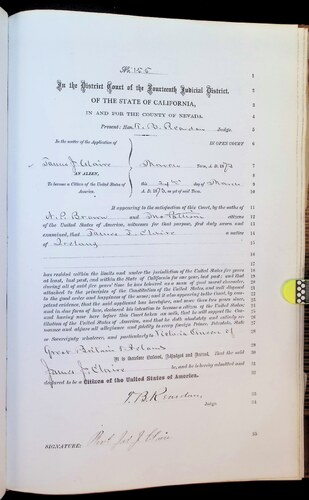 No 155
1
In the District Court of the Fourteenth Judicial District,
2
OF THE STATE OF CALIFORNIA,
3
IN AND FOR THE COUNTY OF NEVADA.
4
Present: Hon. T. B. Reardan Judge.
5
In the matter of the Application of
IN OPEN COURT
6
James J. Claire
March Term A. D. 187
7
AN ALIEN,
8
To become a Citizen of the United States of
day of March
9
America.
A. D. 187
10
It appearing to the satisfaction of this Court, by the oaths of
11
A. P. Brown and citizens
12
of the United States of America, witnesses for that purpose, first duly sworn and
13
examined, that James J. Claire a native
14
of Ireland
15
16
17
has resided within the limits and under the jurisdiction of the United States five years
18
at least, last past, and within the State of California for one year, last past; and that
19
during all of said five years' time he has behaved as a man of good moral character,
20
attached to the principles of the Constitution of the United States, and well disposed
21
to the good order and happiness of the same; and it also appearing to the Court, by com-
22
petent evidence, that the said applicant has heretofore, and more than two years since,
23
and in due form of law, declared his intention to become a citizen of the United States;
24
and having now here before this Court taken an oath, that he will support the Con-
25
stitution of the United States of America, and that he doth absolutely and entirely re-
26
nounce and abjure all allegiance and fidelity to every foreign Prince, Potentate, State
27
or Sovereignty whatever, and particularly to Victoria Queen of
28
Great Britain & Ireland
29
It is therefore Ordered, Adjudged and Decreed, That the said
30
James J. Claire be, and he is hereby admitted and
31
declared to be a Citizen of the United States of America.
32
T. B. Reardan
33
Judge.
34
SIGNATURE:
35